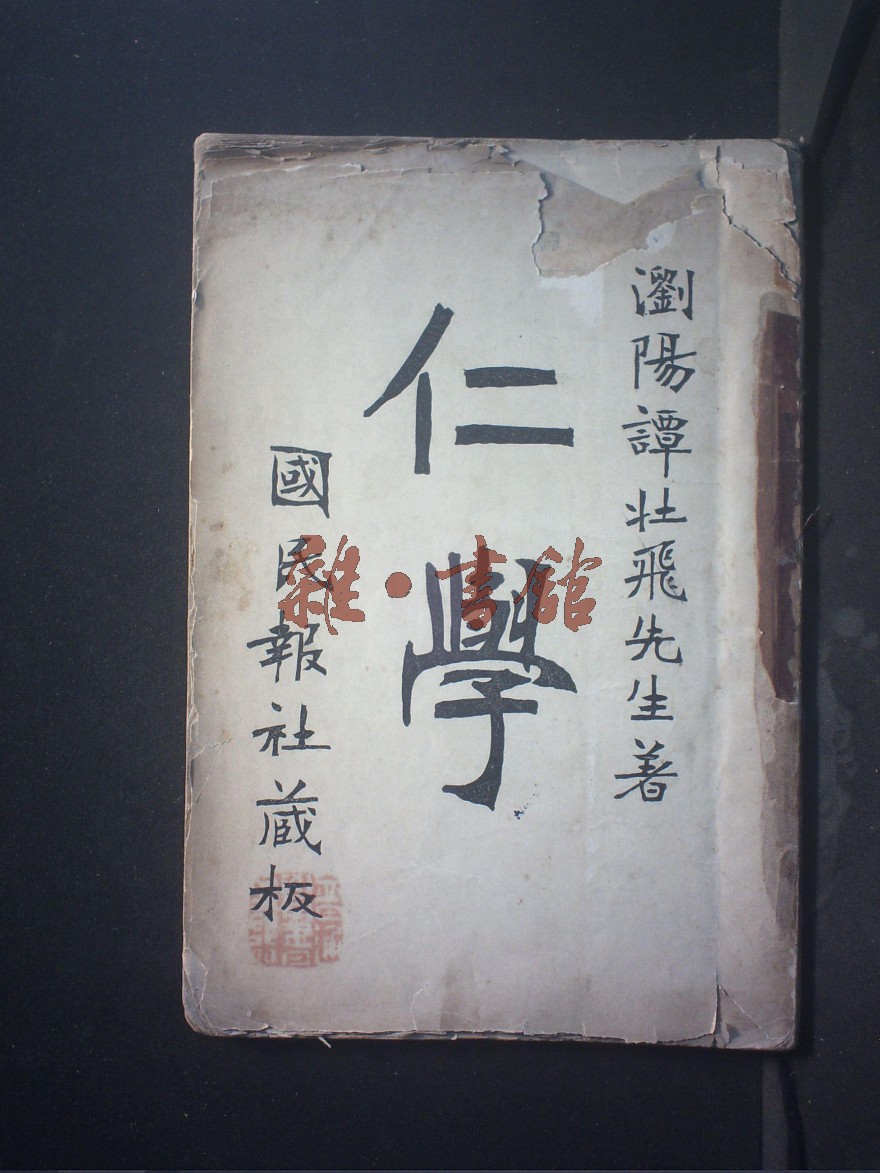 瀏陽譚壯飛先生著
仁學
國民報社蔵板
雜·書館